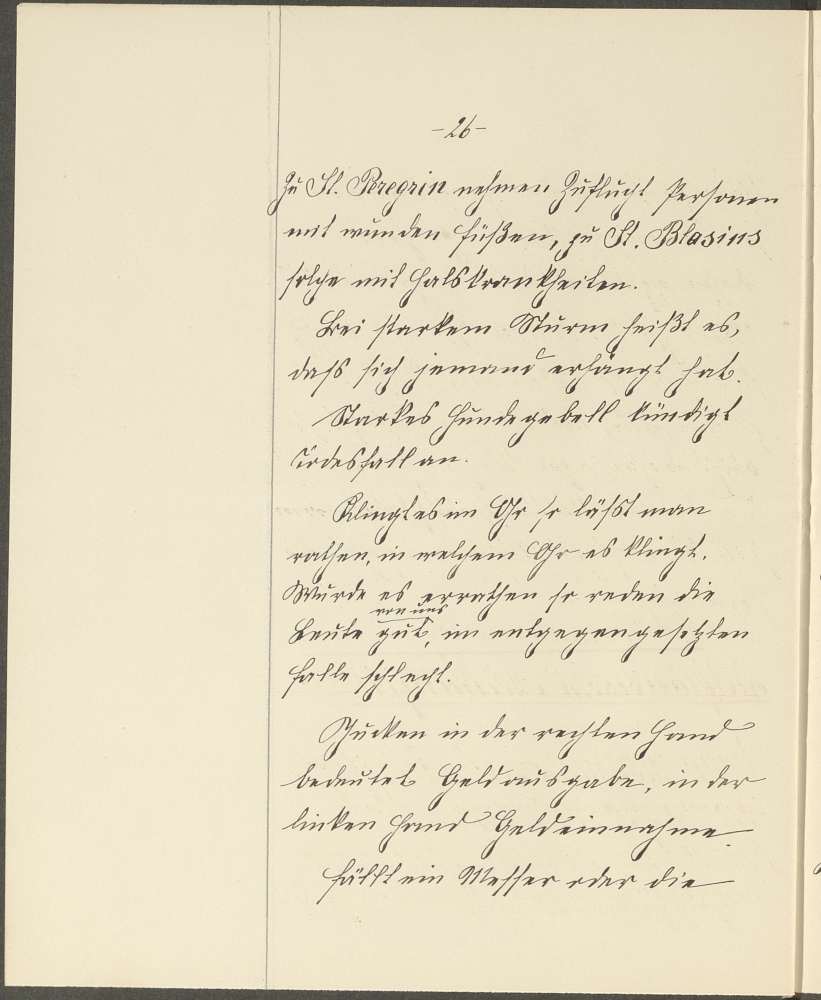 -26-
Zu St. Peregrin nehmen Zuflucht Personen
mit wunden Füßen, zu St. Blasius
solche mit Halskrankheiten.
Bei starkem Sturm heißt es,
dass sich jemand erhängt hat.
Starkes Hundegebell kündigt
Todesfall an.
Klingt es im Ohr so läßt man
rathen, in welchem Ohr es klingt.
Wurde es errathen so reden die
von uns
Leute gut, im entgegengesetzten
Falle schlecht.
Jucken in der rechten Hand
bedeutet Geldausgabe, in der
linken Hand Geldeinnahme.
Fällt ein Messer oder die